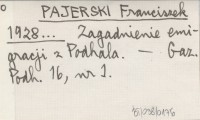 PAJERSKI Franciszek
1928... Zagadnienie emi-
gracji z Podhala. — Gaz.
Podh. 16, nr 1.